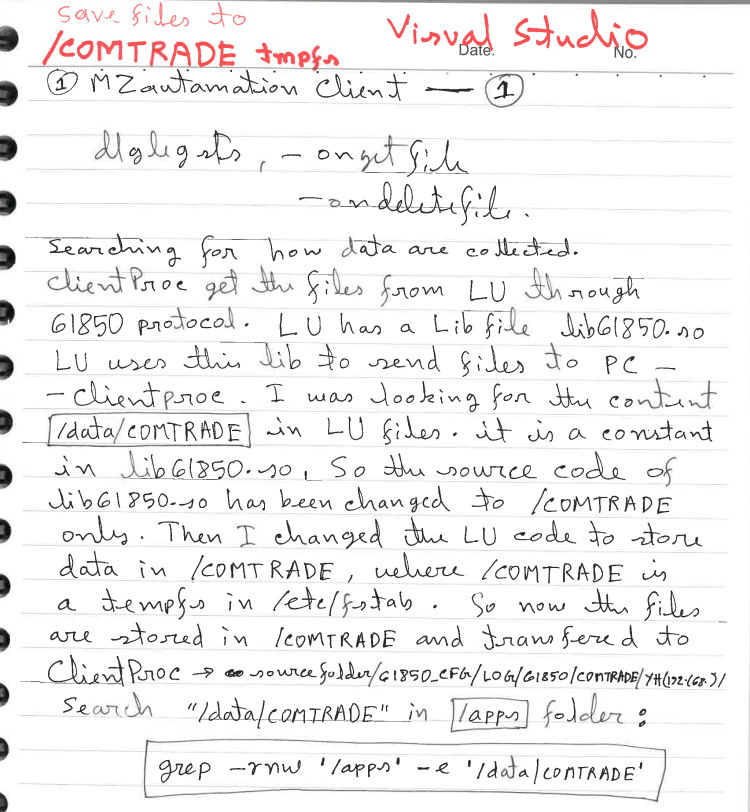 save files to
/COMTRADE tmpfs
Visual Studio
Date.
No.
① MZautamation Client — ①
, - onget file
- ondeletefile.
Searching for how data are collected.
clientProc get the files from LU through
61850 protocol. LU has a Lib file lib61850.so
LU uses this lib to send files to PC -
- clientproc. I was looking for the content
/data/COMTRADE in LU files. it is a constant
in lib61850.so, So the source code of
lib61850.so has been changed to /COMTRADE
only. Then I changed the LU code to store
data in /COMTRADE, where /COMTRADE is
a tempfs in /etc/fstab. So now the files
are stored in /COMTRADE and transfered to
ClientProc → sourcefolder/61850_CFG/LOG/61850/COMTRADE/YH(192.168.)/
Search "/data/COMTRADE" in /apps folder:
grep -rnw '/apps' -e '/data/COMTRADE'